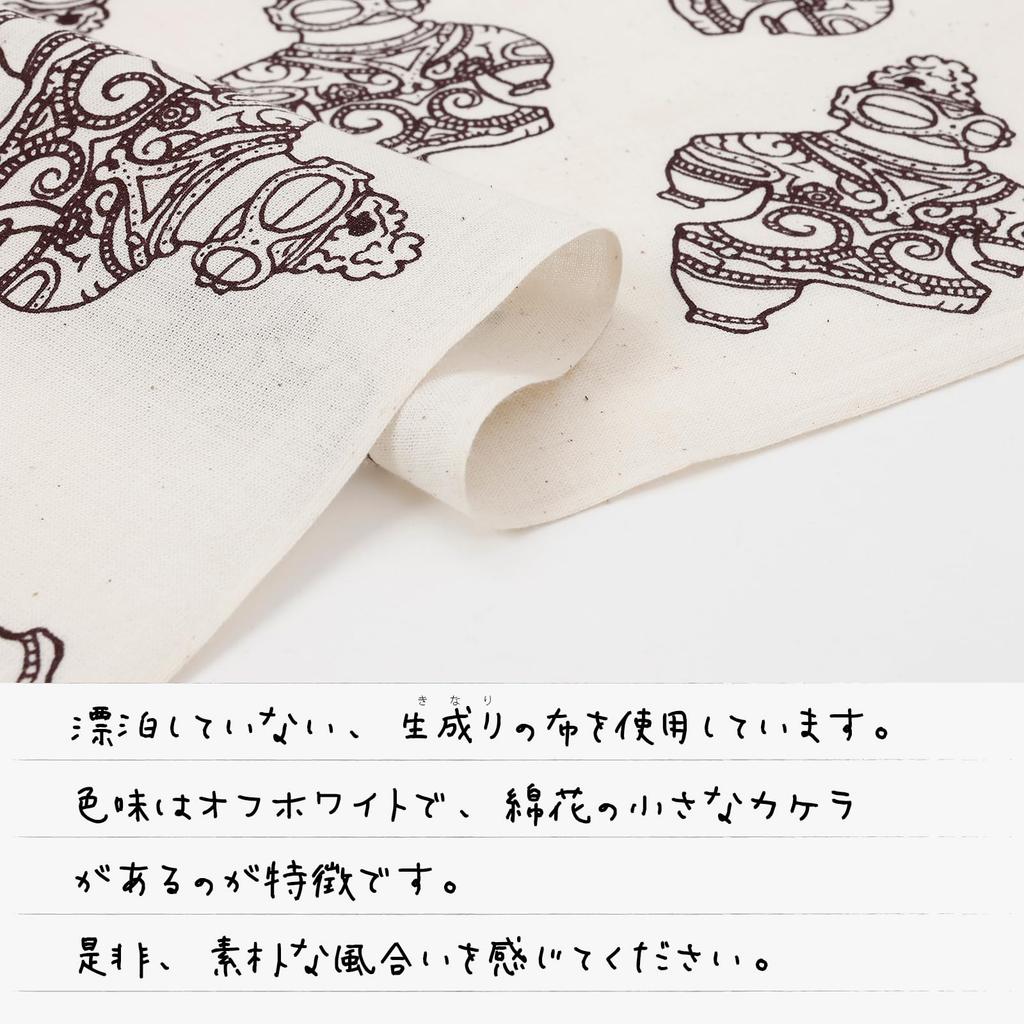 漂泊していない、生成りの布を使用しています。
きなり
色味はオフホワイトで、綿花の小さなカケラ
があるのが特徴です。
是非、素朴な風合いを感じてください。